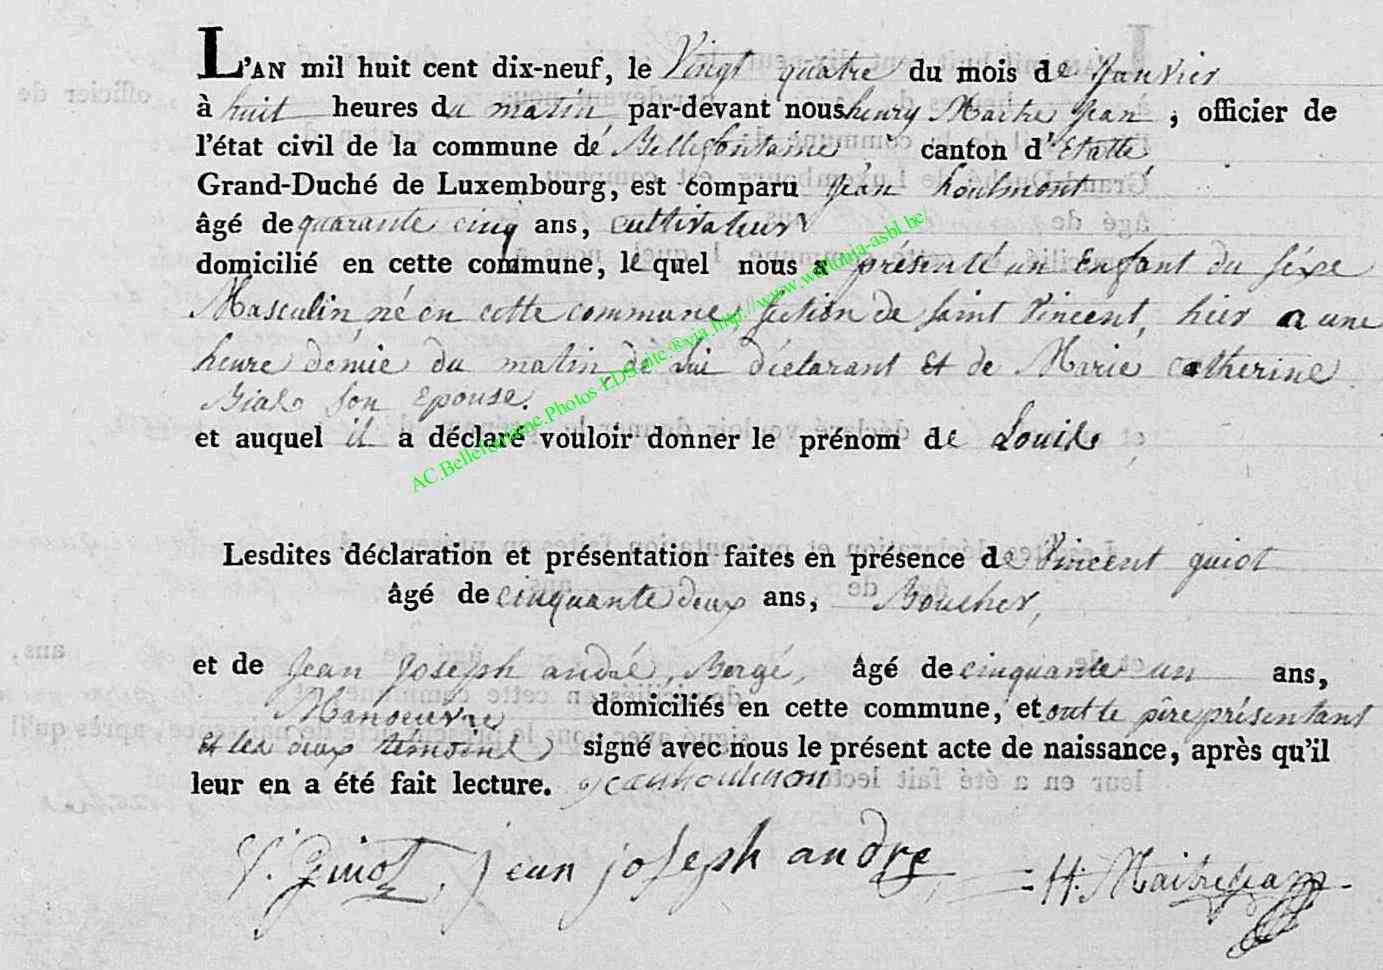 L'AN mil huit cent dix-neuf, le Vingt quatre du mois de Janvier
à huit heures du matin par-devant nous henry Maitre Jean, officier de
l'état civil de la commune de Bellefontaine canton d'Etalle
Grand-Duché de Luxembourg, est comparu Jean houlmont
âgé de quarante cinq ans, cultivateur
domicilié en cette commune, lequel nous a présenté un Enfant du séxe
Masculin, né en cette commune, section de saint Vincent, hier a une
heure demie du matin, de lui déclarant Et de Marie catherine
son Epouse.
et auquel il a déclaré vouloir donner le prénom de Louis
Lesdites déclaration et présentation faites en présence de Vincent guiot
âgé de cinquante deux ans, Boucher,
et de Jean Joseph andré, Bergé, âgé de cinquante un ans,
Manoeuvre domiciliés en cette commune, et ont le père présentant
et les deux témoins signé avec nous le présent acte de naissance, après qu'il
leur en a été fait lecture. jean houlmon
V. Guiot, jean joseph andre H. Maitrejean
AC.Bellefontaine.Photos LDS etc ® via http://www.wallonia-asbl.be/